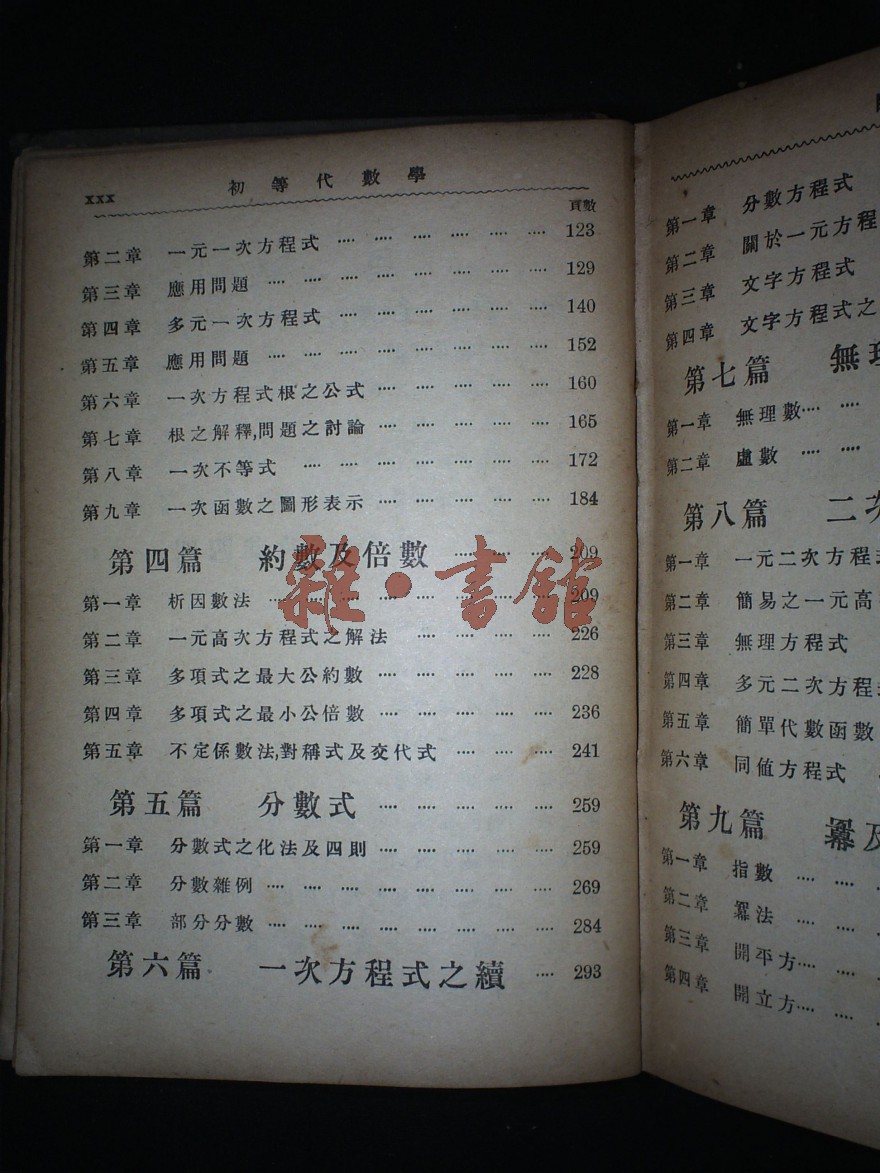 xxx 初等代數學
頁數
第二章 一元一次方程式 ···· ···· ···· ···· ···· ···· 123
第三章 應用問題 ···· ···· ···· ···· ···· ···· ···· ···· 129
第四章 多元一次方程式 ···· ···· ···· ···· ···· ···· 140
第五章 應用問題 ···· ···· ···· ···· ···· ···· ···· ···· 152
第六章 一次方程式根之公式 ···· ···· ···· ···· ···· 160
第七章 根之解釋,問題之討論 ···· ···· ···· ···· ···· 165
第八章 一次不等式 ···· ···· ···· ···· ···· ···· ···· 172
第九章 一次函數之圖形表示 ···· ···· ···· ···· ···· 184
第四篇 約數及倍數 ···· ···· ···· 209
第一章 析因數法 ···· ···· ···· ···· ···· ···· ···· ···· 209
第二章 一元高次方程式之解法 ···· ···· ···· ···· 226
第三章 多項式之最大公約數 ···· ···· ···· ···· ···· 228
第四章 多項式之最小公倍數 ···· ···· ···· ···· ···· 236
第五章 不定係數法,對稱式及交代式 ···· ···· ···· 241
第五篇 分數式 ···· ···· ···· ···· ···· 259
第一章 分數式之化法及四則 ···· ···· ···· ···· ···· 259
第二章 分數雜例 ···· ···· ···· ···· ···· ···· ···· ···· 269
第三章 部分分數 ···· ···· ···· ···· ···· ···· ···· ···· 284
第六篇 一次方程式之續 ···· 293
雜·書館
第一章 分數方程式
第二章 關於一元方程
第三章 文字方程式
第四章 文字方程式之
第七篇 無理
第一章 無理數 ···· ····
第二章 虛數 ···· ····
第八篇 二次
第一章 一元二次方程式
第二章 簡易之一元高
第三章 無理方程式
第四章 多元二次方程式
第五章 簡單代數函數
第六章 同値方程式
第九篇 冪及
第一章 指數 ···· ····
第二章 冪法 ···· ····
第三章 開平方 ···· ····
第四章 開立方 ···· ····